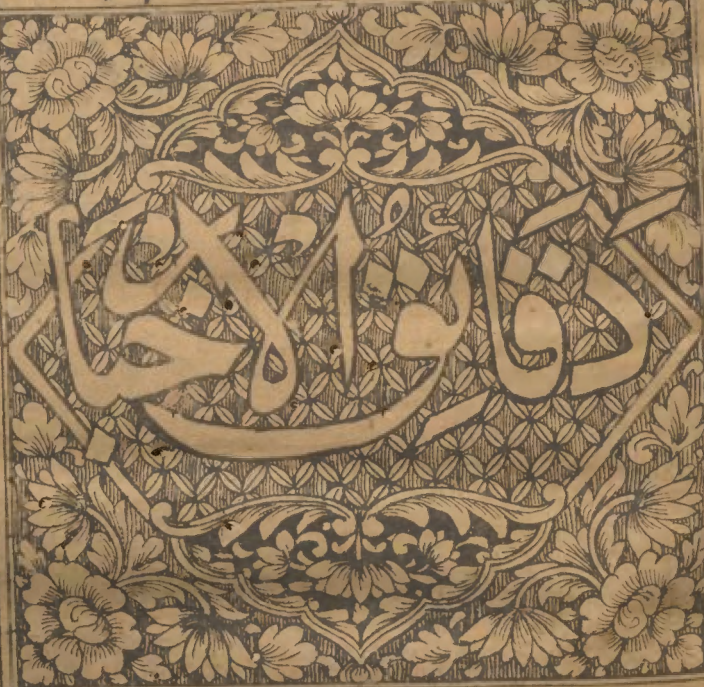 دَقَائِقُ الْاَخْبَارِ